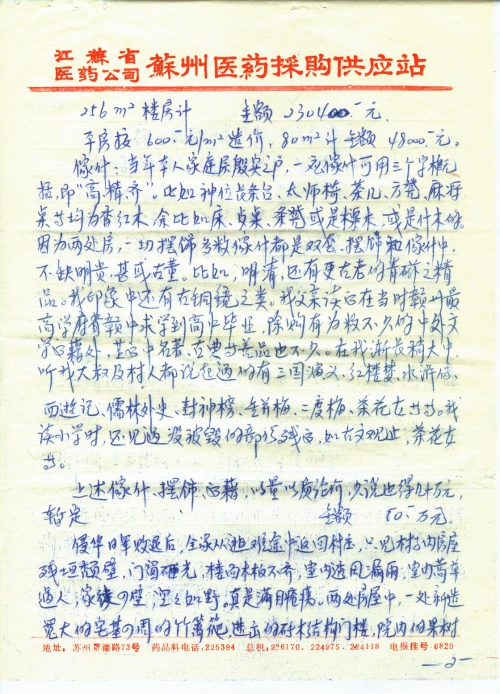 江苏省
医药公司 苏州医药採购供应站
256m²楼房计 金额 230400.-元.
平房按 600.-元/m²造价, 80m²计 金额 48000.-元。
傢什: 当年本人家庭属殷实之户, 一应傢什可用三个字概
括, 即"高、精、齐"。比如神位长条台、太师椅、茶几、方凳、麻将
桌等均为香红木, 余比如床、桌、凳或是榉木 或是什木的。
因为两处房, 一切摆饰 傢什都是双套。摆饰和傢什中,
不缺明贵、甚或古董。比如, 明清, 还有更古老的青砖之精
品。我印象中还有古铜镜之类。我父亲读书在当时赣州最
高学府省赣中求学到高中毕业, 除购有为数不少的中外文
学书籍外, 其中名著、古典 善品也不少。在我渐长稍大中,
听我大叔及村人都说起过的有三国演义、红楼梦、水浒传、
西遊记、儒林外史、封神榜、金瓶梅、二度梅、茶花女等等。我
读小学时, 还见过没被毁的部份残页, 如古文观止, 茶花女
等。
上述傢什、摆饰、书籍, 以量以质论价, 少说也得几十万元,
暂定 金额 50.-万元。
侵华日军败退后, 全家从逃难途中返回村庄, 只见村子内房屋
残垣颓壁, 门窗砸光, 楼面木板不齐, 室内透风漏雨, 室内蒿草
逼人, 家徒四壁, 真是满目疮痍。两处房屋中, 一处新造
宽大的宅基四周的竹篱笆, 进出的砖木结构门楼, 院内的果树
地址: 苏州景德路73号 药品科电话: 225394 总机: 226170. 224975. 224118 电报挂号: 6829
—2—